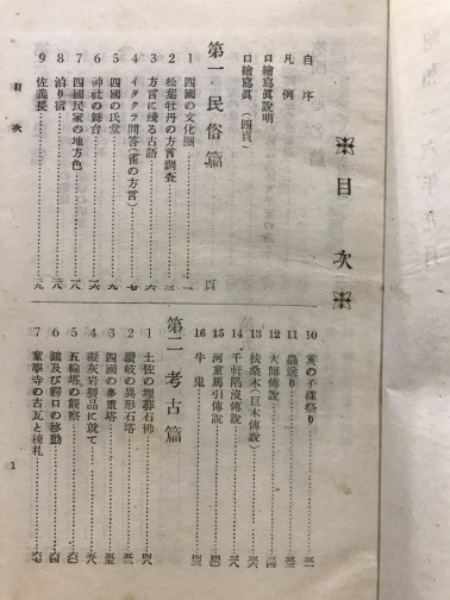 目次
自序
凡例
口繪寫眞說明
口繪寫眞(四頁)
第一 民俗篇 頁
1 四國の文化圈 一
2 松葉牡丹の方言調査
3 方言に殘る古語 六
4 イタクラ問答(雀の方言) 七
5 四國の氏堂 九
6 神社の舞台 一六
7 四國民家の地方色 一八
8 泊り宿 二八
9 佐義長 二九
10 亥の子樣祭り 三一
11 蟲送り 三三
12 大師傳說 三四
13 扶桑木(巨木傳說) 三六
14 千軒陷沒傳說 三八
15 河童馬引傳說 四〇
16 牛鬼 四三
第二 考古篇
1 土佐の埋葬石佛 四八
2 讚岐の異形石塔 五三
3 四國の多重塔 五五
4 凝灰岩製品に就て 五八
5 五輪塔の觀察 六〇
6 鐘及び鰐口の移動 六四
7 童學寺の古瓦と棟札 六七
目次
1